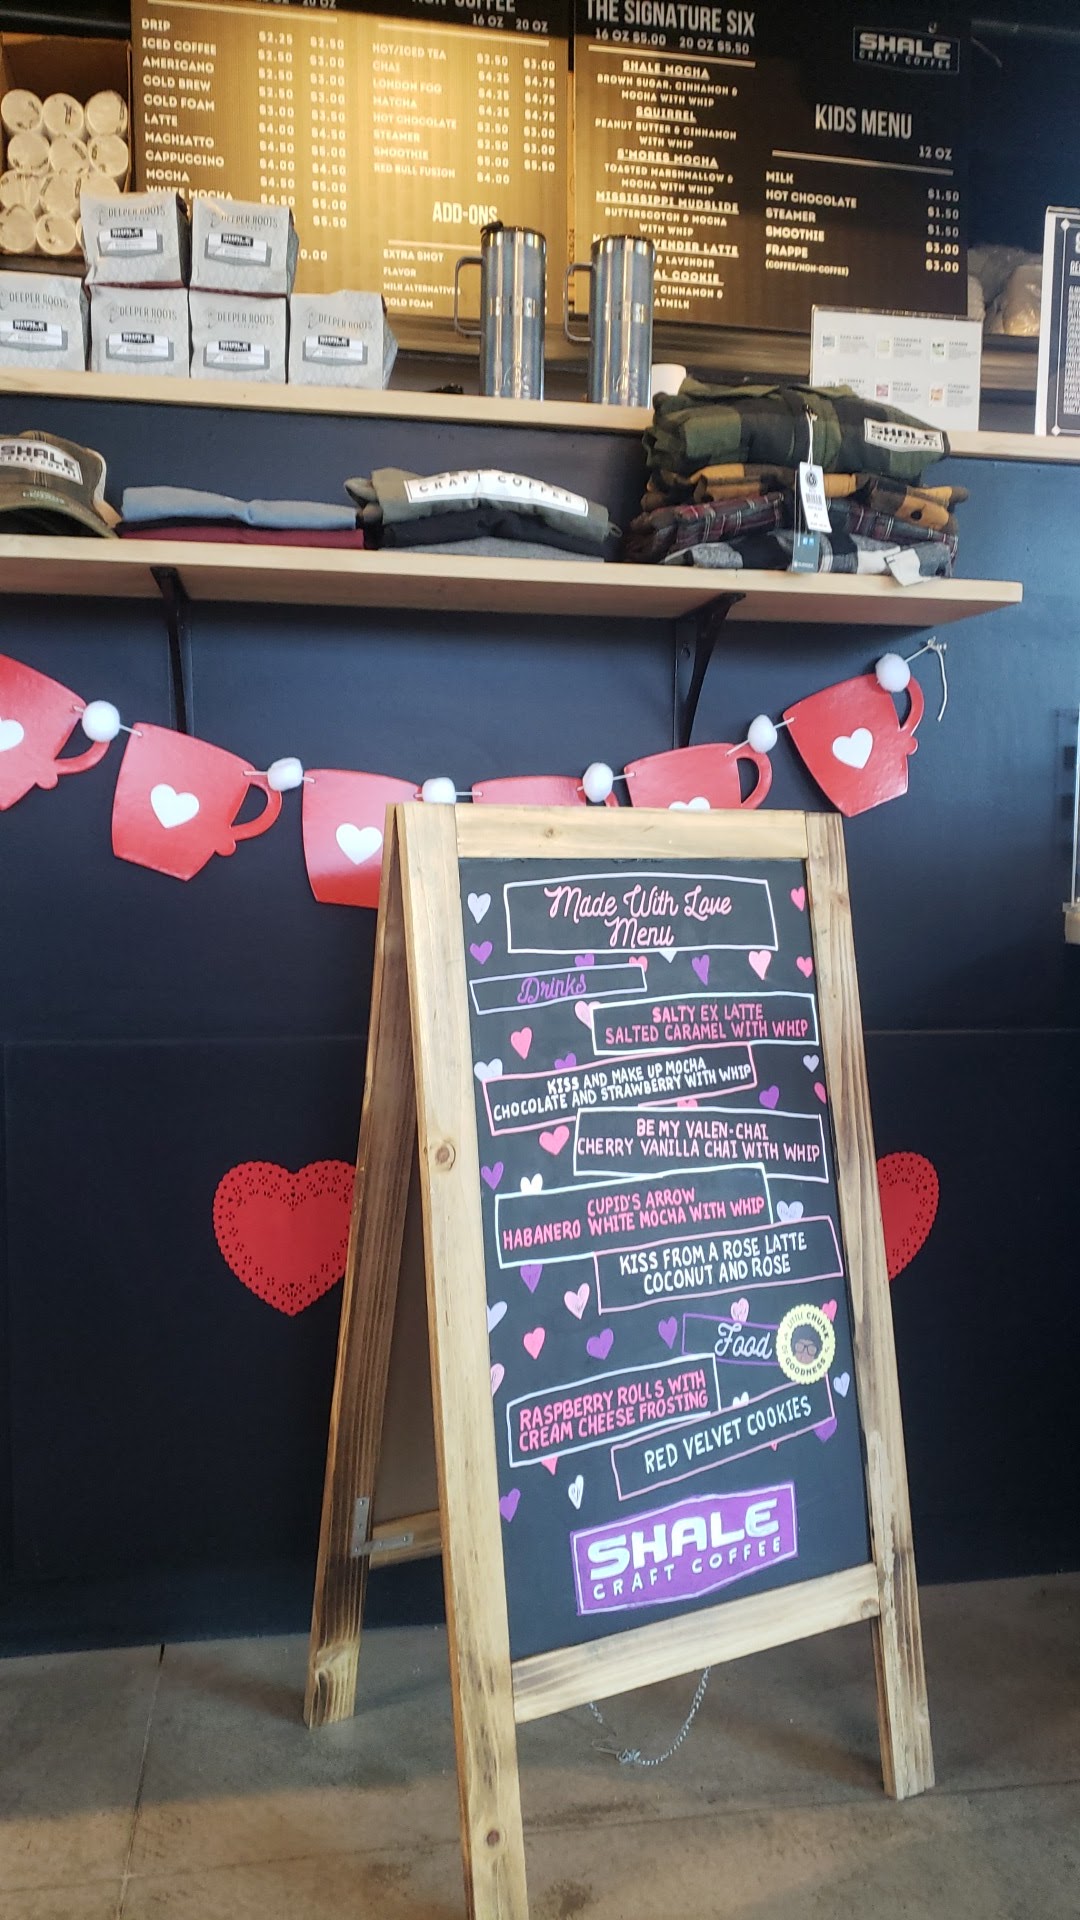 20 OZ
DRIP $2.25 $2.50
ICED COFFEE $2.50 $3.00
AMERICANO $2.50 $3.00
COLD BREW $2.50 $3.00
COLD FOAM $3.00 $3.50
LATTE $4.00 $4.50
MACHIATTO $4.50 $5.00
CAPPUCCINO $4.00 $4.50
MOCHA $4.50 $5.00
WHITE MOCHA
$5.50
COFFEE
16 OZ 20 OZ
HOT/ICED TEA $2.50 $3.00
CHAI $4.25 $4.75
LONDON FOG $4.25 $4.75
MATCHA $4.25 $4.75
HOT CHOCOLATE $2.50 $3.00
STEAMER $2.50 $3.00
SMOOTHIE $5.00 $5.50
RED BULL FUSION $4.00
ADD-ONS
EXTRA SHOT
FLAVOR
MILK ALTERNATIVES
COLD FOAM
THE SIGNATURE SIX
16 OZ $5.00 20 OZ $5.50
SHALE MOCHA
BROWN SUGAR, CINNAMON &
MOCHA WITH WHIP
SQUIRREL
PEANUT BUTTER & CINNAMON
WITH WHIP
S'MORES MOCHA
TOASTED MARSHMALLOW &
MOCHA WITH WHIP
MISSISSIPPI MUDSLIDE
BUTTERSCOTCH & MOCHA
WITH WHIP
VENDER LATTE
& LAVENDER
AL COOKIE
, CINNAMON &
ATMILK
SHALE
CRAFT COFFEE
KIDS MENU
12 OZ
MILK $1.50
HOT CHOCOLATE $1.50
STEAMER $1.50
SMOOTHIE $3.00
FRAPPE $3.00
(COFFEE/NON-COFFEE)
DEEPER ROOTS
SHALE
DEEPER ROOTS
SHALE
DEEPER ROOTS
SHALE
DEEPER ROOTS
SHALE
DEEPER ROOTS
SHALE
DEEPER ROOTS
SHALE
SHALE
CRAFT COFFEE
CRAFT COFFEE
SHALE
CRAFT COFFEE
Made With Love
Menu
Drinks
SALTY EX LATTE
SALTED CARAMEL WITH WHIP
KISS AND MAKE UP MOCHA
CHOCOLATE AND STRAWBERRY WITH WHIP
BE MY VALEN-CHAI
CHERRY VANILLA CHAI WITH WHIP
CUPID'S ARROW
HABANERO WHITE MOCHA WITH WHIP
KISS FROM A ROSE LATTE
COCONUT AND ROSE
Food
LITTLE CHUNK
OF GOODNESS
RASPBERRY ROLLS WITH
CREAM CHEESE FROSTING
RED VELVET COOKIES
SHALE
CRAFT COFFEE